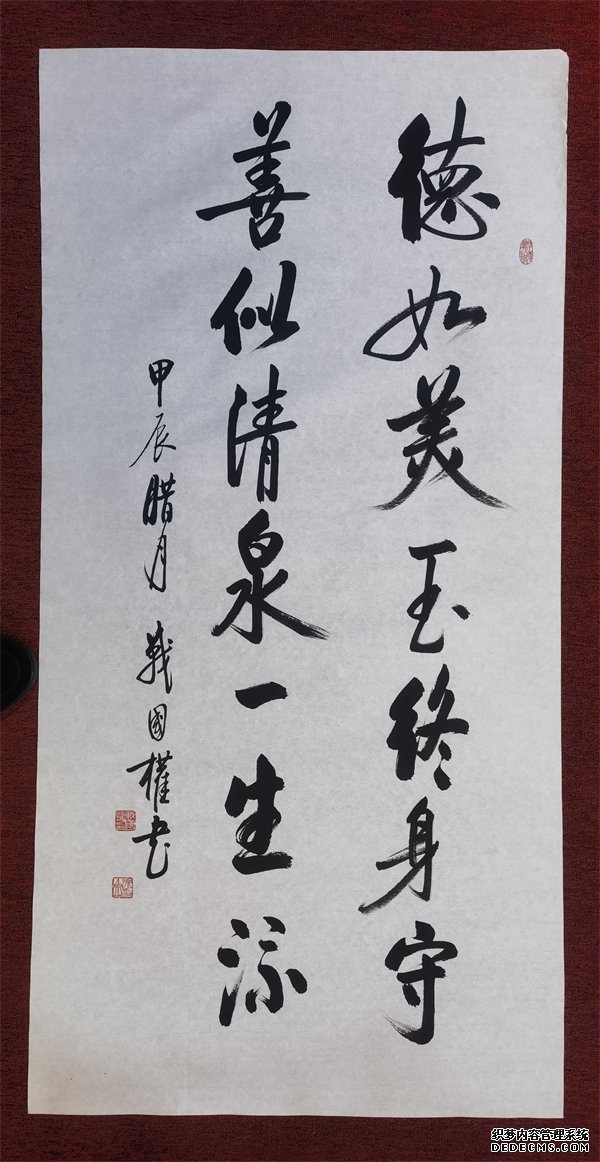 德如美玉终身守
善似清泉一生流
甲辰腊月 战国權书
织梦内容管理系统
DEDECMS.COM